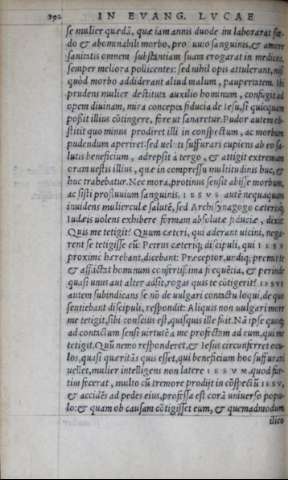 392 IN EVANG. LVCAE
se mulier quædã, quæ iam annis duodecim laborarat fœ-
do & abominabili morbo, profluuio sanguinis, & amore
sanitatis omnem substantiam suam erogarat in medicos,
semper meliora pollicentes: sed nihil opis attulerant, nisi
quòd morbo addiderant aliud malum, paupertatem. Ibi
prudens mulier destituta auxilio hominum, confugit ad
opem diuinam, mira concepta fiducia de Iesu, si quicquam
possit illius cõtingere, fore ut sanaretur. Pudor autem ob-
stitit quo minus prodiret illi in conspectum, ac morbum
pudendum aperiret: sed ueluti suffurari cupiens ab eo sa-
lutis beneficium, adrepsit à tergo, & attigit extremam
oram uestis illius, quæ in compressu multitudinis huc, &
huc trahebatur. Nec mora, protinus sensit abisse morbum,
ac sisti profluuium sanguinis. IESVS autẽ nequaquam
inuidens mulierculæ salutẽ, sed Archisynagogo cæterisq;
Iudæis uolens exhibere formam absolutæ fiduciæ, dixit:
Quis me tetigit? Quum cæteri, qui aderant uicini, nega-
rent se tetigisse eũ: Petrus cæteriq; discipuli, qui IESV
proximè hærebant, dicebant: Præceptor, undiq; premit te
& afflictat hominum confertissima frequẽtia, & perinde
quasi unus aut alter adsit, rogas quis te cõtigerit? IESVS
autem subindicans se nõ de uulgari contactu loqui, de quo
sentiebant discipuli, respondit: Aliquis non uulgari more
me tetigit, sibi conscius est, quisquis ille fuit. Nã ipse quoq;
ad contactum sensi uirtutẽ à me profectam ad eum, qui me
tetigit. Quũ nemo responderet, & Iesus circunferret ocu-
los, quasi quæritãs quis esset, qui beneficium hoc suffurari
uellet, mulier intelligens non latere IESVM, quod fur-
tim fecerat, multo cũ tremore prodijt in cõspectũ IESV,
& accidẽs ad pedes eius, professa est corã uniuerso popu-
lo: & quam ob causam cõtigisset eum, & quemadmodum
ilico